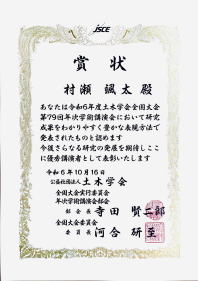 JSCE
賞状
村瀬 颯太 殿
あなたは令和6年度土木学会全国大会
第79回年次学術講演会において研究
成果をわかりやすく豊かな表現方法で
発表されたものと認めます
今後さらなる研究の発展を期待しここ
に優秀講演者として表彰いたします
令和6年10月16日
公益社団法人 土木学会
全国大会実行委員会
年次学術講演会部会
部会長 寺田 賢二郎
全国大会委員会
委員長 河合 研至